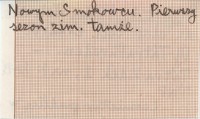 Nowym Smokowcu. Pierwszy
sezon zim. tamże.